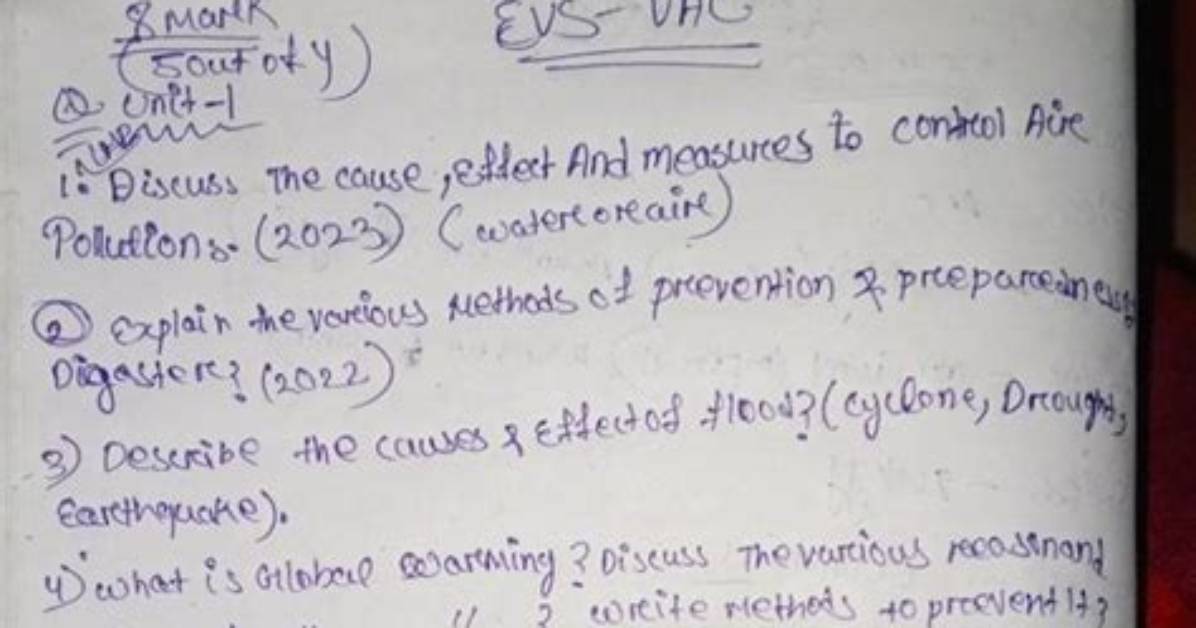 8 Mark
EVS - VAC
(5 out of 4)
Unit-1
1. Discuss The cause, effect And measures to control Aire
Pollutions. (2023) (watere ore aire)
② Explain the vareious Methods of prevention & preeparedness
Digastere? (2022)
3) Describe the causes & Effect of flood? (cyclone, Drought,
Earethquake).
4) what is Global warming? Discuss The vareious reoason and
" ? wreite Methods to preevent it?